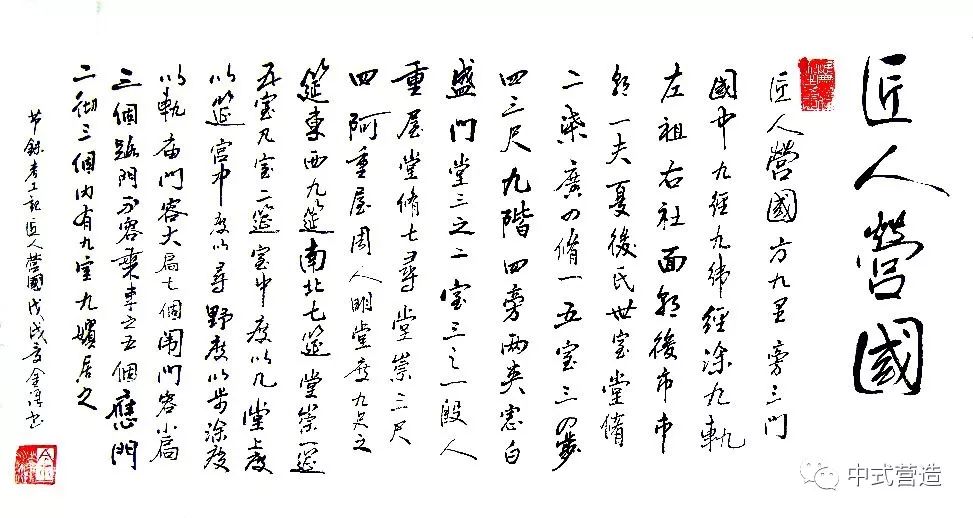 匠人營國
匠人營國方九里旁三門
國中九經九緯經涂九軌
左祖右社面朝後市市
朝一夫夏後氏世室堂脩
二柒廣四脩一五室三四步
四三尺九階四旁兩夾窓白
盛門堂三之二室三之一殷人
重屋堂脩七尋堂崇三尺
四阿重屋周人明堂度九尺之
筵東西九筵南北七筵堂崇一筵
五室凡室二筵室中度以几堂上度
以筵宮中度以尋野度以步涂度
以軌庙門容大扃七個闱門容小扃
三個路門不容乘車之五個應門
二彻三個內有九室九嬪居之
节錄考工記匠人營國戊戌
中式营造